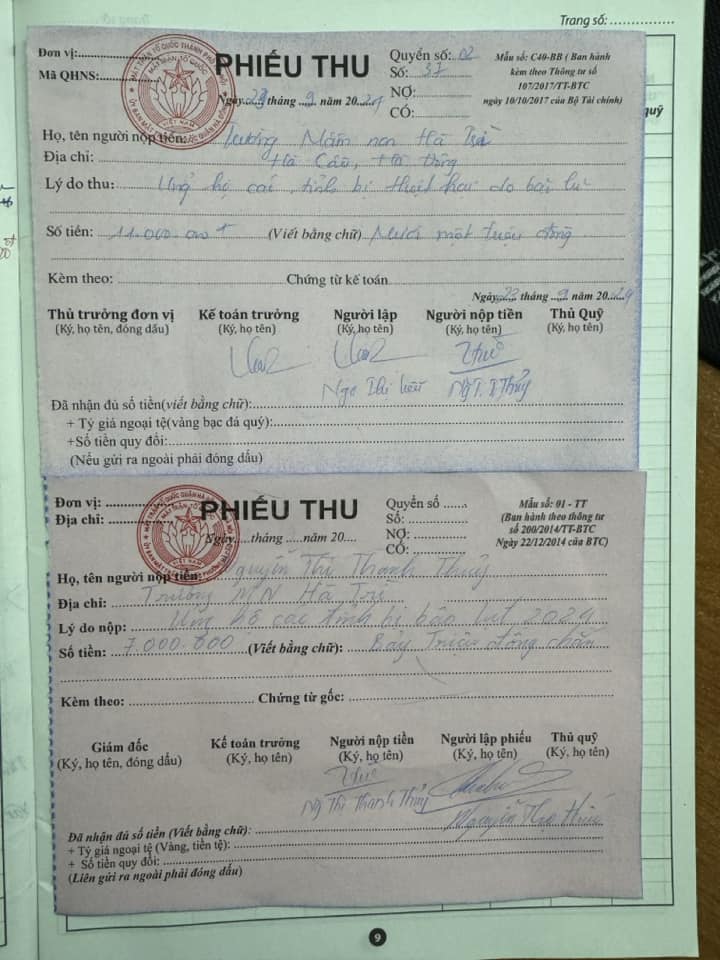 Trang số: ...............
Đơn vị:....................
Mã QHNS:
PHIẾU THU
Ngày 23 tháng 9 năm 2024
Quyển số: 02
Số: 37
NỢ:..............
CÓ:..............
Mẫu số: C40-BB ( Ban hành
kèm theo Thông tư số
107/2017/TT-BTC
ngày 10/10/2017 của Bộ Tài chính)
quỹ
Họ, tên người nộp tiền: Trường Mầm non Hà Trì
Địa chỉ: Hà Cầu, Hà Đông
Lý do thu: Ủng hộ các tỉnh bị thiệt hại do bão lũ
Số tiền: 11.000.000đ (Viết bằng chữ) Mười một triệu đồng
Kèm theo: .................... Chứng từ kế toán....................
Ngày 23 tháng 9 năm 2024
Thủ trưởng đơn vị Kế toán trưởng Người lập Người nộp tiền Thủ Quỹ
(Ký, họ tên, đóng dấu) (Ký, họ tên) (Ký, họ tên) (Ký, họ tên) (Ký, họ tên)
Ngô Thị Ng.T.T Thủy
Đã nhận đủ số tiền(viết bằng chữ):....................
+ Tỷ giá ngoại tệ(vàng bạc đá quý):....................
+Số tiền quy đổi:....................
(Nếu gửi ra ngoài phải đóng dấu)
Đơn vị: ....................
Địa chỉ: ....................
PHIẾU THU
Ngày.....tháng .....năm 20....
Quyển số ......
Số: ..............
NỢ: ..............
CÓ: ..............
Mẫu số: 01 - TT
(Ban hành theo thông tư
số 200/2014/TT-BTC
Ngày 22/12/2014 của BTC)
Họ, tên người nộp tiền: Nguyễn Thị Thanh Thủy
Địa chỉ: Trường MN Hà Trì
Lý do nộp: Ủng hộ các tỉnh bị bão lụt 2024
Số tiền: 7.000.000 (Viết bằng chữ): Bảy Triệu đồng chẵn
Kèm theo: .................... Chứng từ gốc: ....................
Giám đốc Kế toán trưởng Người nộp tiền Người lập phiếu Thủ quỹ
(Ký, họ tên, đóng dấu) (Ký, họ tên) (Ký, họ tên) (Ký, họ tên) (Ký, họ tên)
Ng Thị Thanh Thủy Nguyễn
Đã nhận đủ số tiền (Viết bằng chữ): ....................
+ Tỷ giá ngoại tệ (Vàng, tiền tệ): ....................
+ Số tiền quy đổi: ....................
(Liên gửi ra ngoài phải đóng dấu)
9